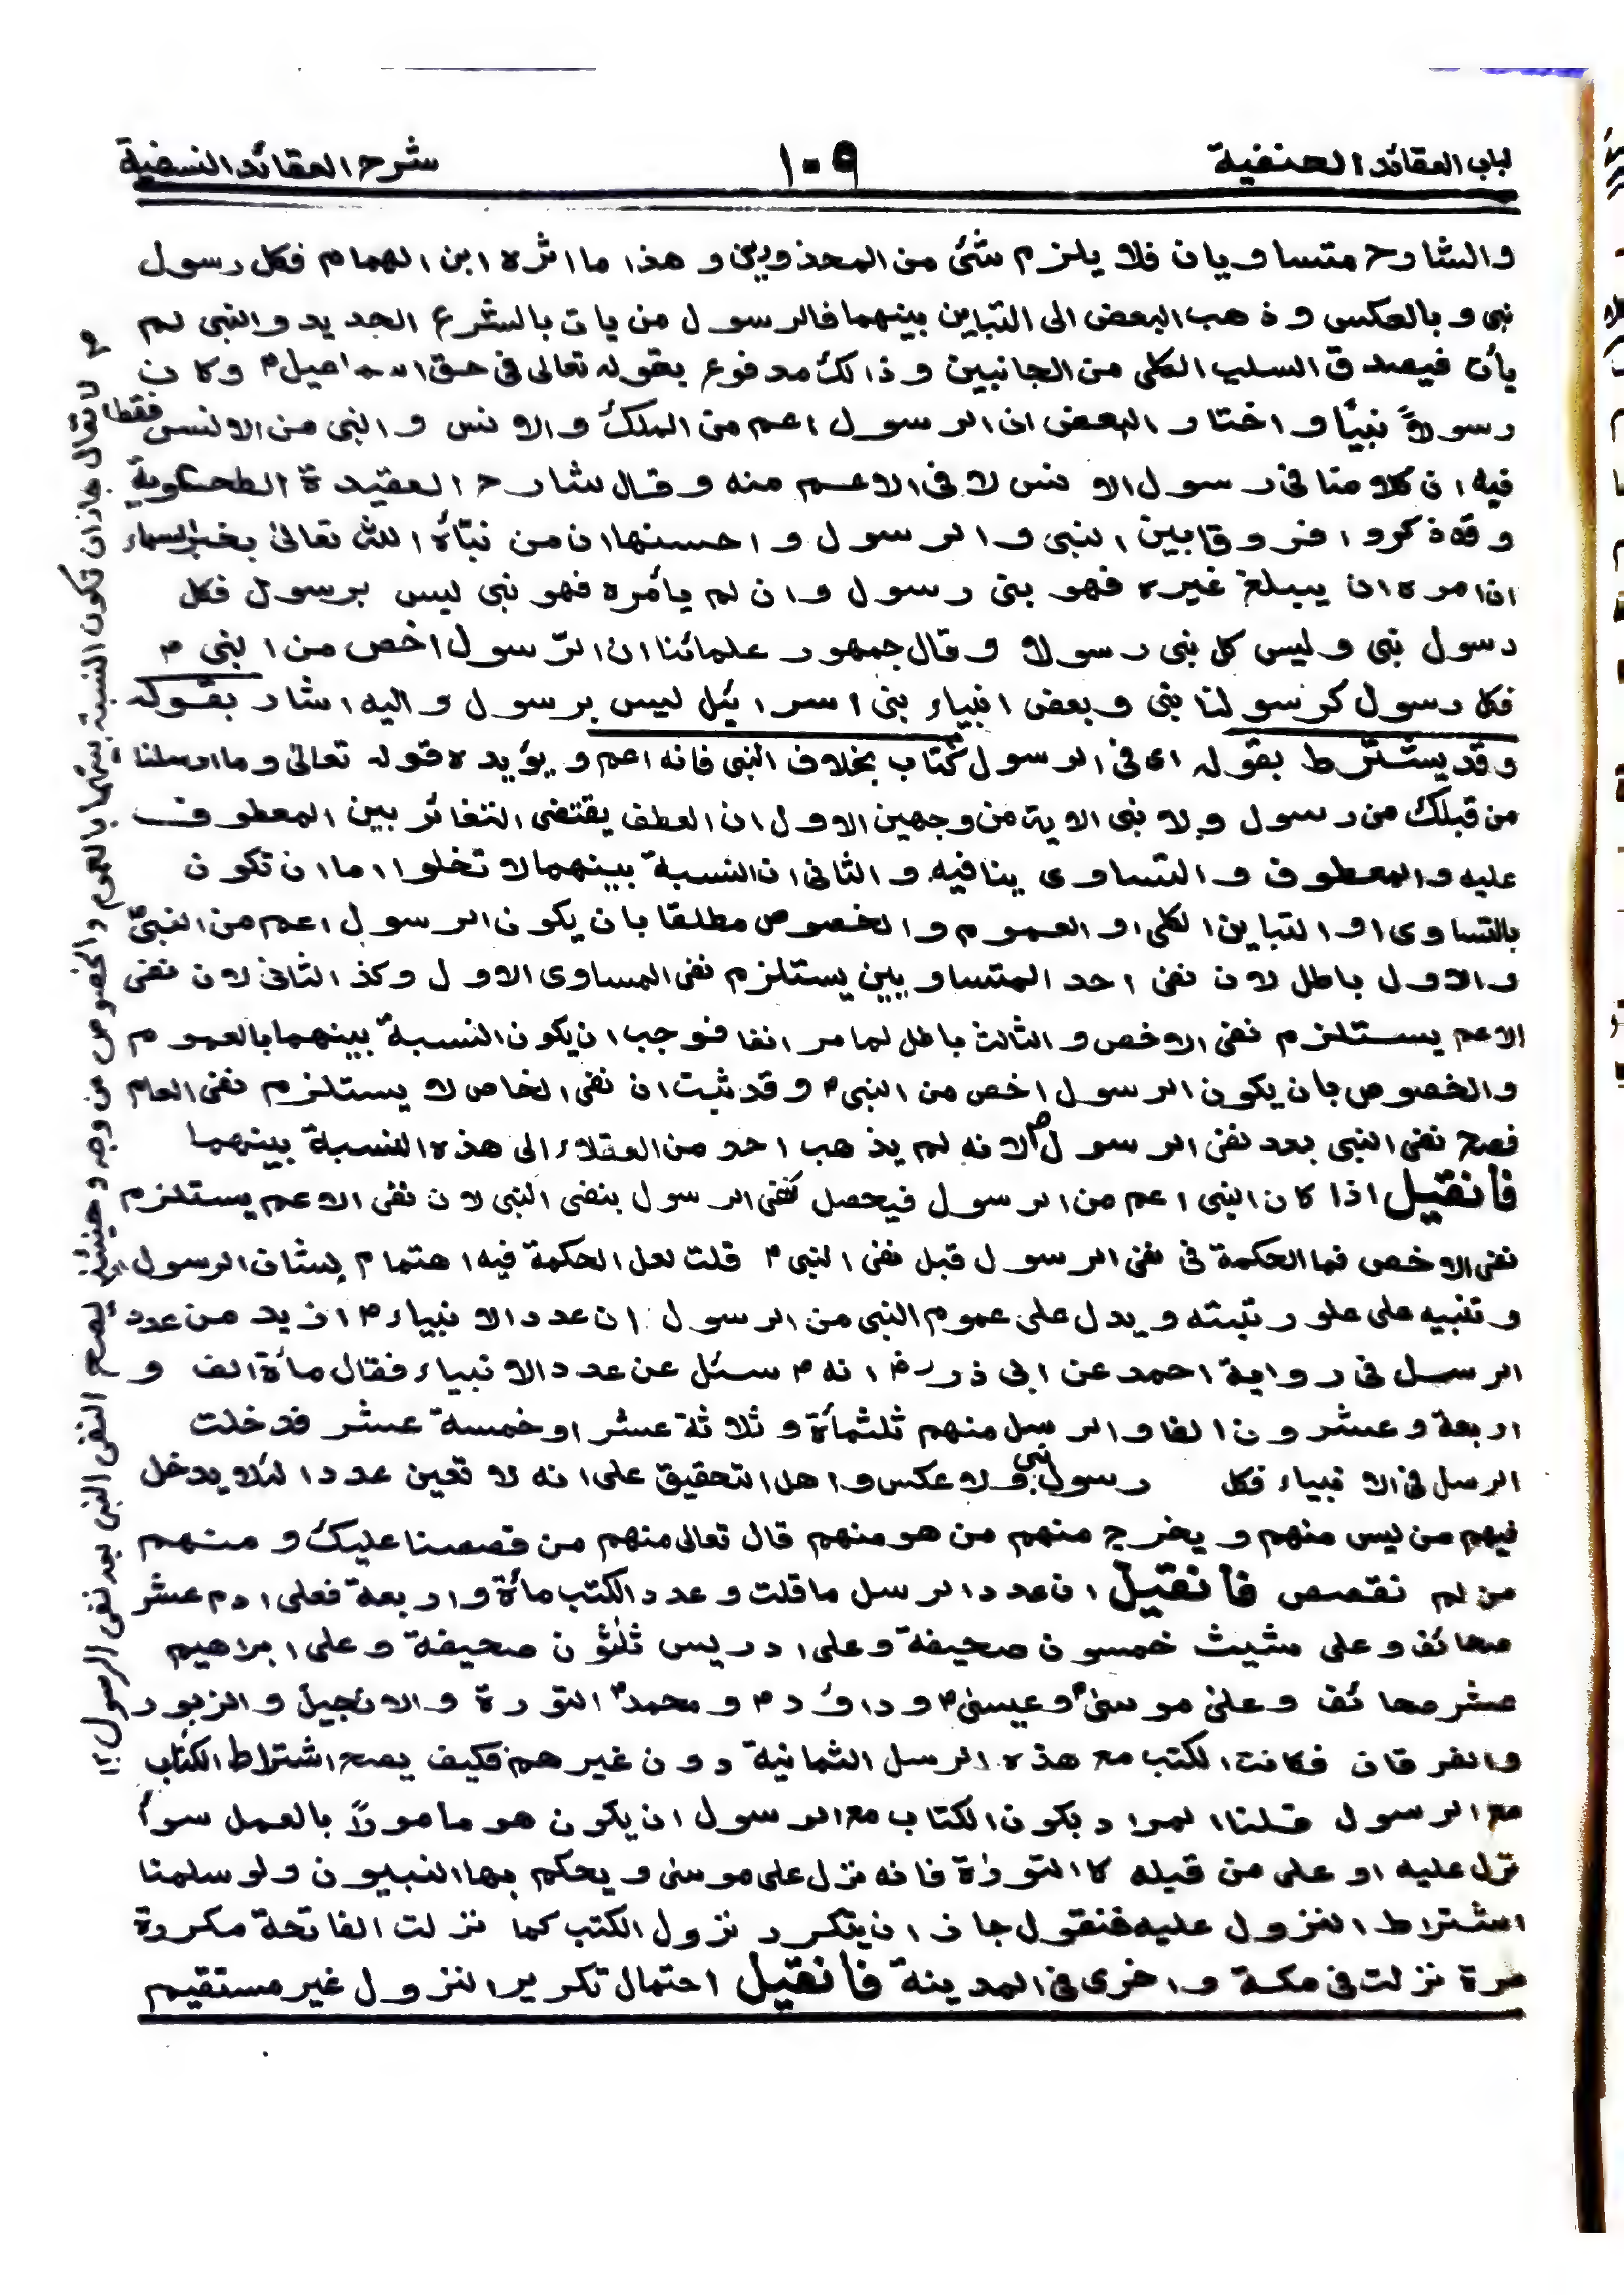 لباب العقائد الحنفية
١٠٩
شرح العقائد النسفية
والشارح متساويان فلا يلزم شئ من المحذورين وهذا ما اثره ابن الهمام فكل رسول
نبى و بالعكس وذهب البعض الى التباين بينهما فالرسول من يات بالشرع الجديد والنبى لم
يأت فيصدق السلب الكلى من الجانبين وذالك مدفوع بقوله تعالى فى حق اسماعيل؀ وكان
رسولاً نبيًا واختار البعض ان الرسول اعم من الملك والانس والنبى من الانس فقط
فيه ان كلامنا فى رسول الانس لا فى الاعم منه وقال شارح العقيدة الطحاوية
وقد ذكروا فروقا بين النبى والرسول واحسنها ان من نبّأه الله تعالى بخبر السماء
ان امره ان يبلغ غيره فهو نبى رسول وان لم يأمره فهو نبى ليس برسول فكل
رسول نبى وليس كل نبى رسولا وقال جمهور علمائنا ان الرّسول اخص من النبى م
فكل رسول كرسولنا نبى وبعض انبياء بنى اسرائيل ليس برسول واليه اشار بقوله
وقد يشترط بقوله اى فى الرسول كتاب بخلاف النبى فانه اعم ويؤيده قوله تعالى وما ارسلنا
من قبلك من رسول ولا نبى الاية من وجهين الاول ان العطف يقتضى التغائر بين المعطوف
عليه والمعطوف والتساوى ينافيه والثانى ان النسبة بينهما لا تخلوا اما ان تكون
بالتساوى او التباين الكلى او العموم والخصوص مطلقا بان يكون الرسول اعم من النبىّ
والاول باطل لان نفى احد المتساويين يستلزم نفى المساوى الاول وكذ الثانى لان نفى
الاعم يستلزم نفى الاخص والثالث باطل لما مر انفا فوجب ان يكون النسبة بينهما بالعموم
والخصوص بان يكون الرسول اخص من النبى م وقد ثبت ان نفى الخاص لا يستلزم نفى العام
فصح نفى النبى بعد نفى الرسول م لانه لم يذهب احد من العقلاء الى هذه النسبة بينهما
فأنقيل اذا كان النبى اعم من الرسول فيحصل نفى الرسول بنفى النبى لان نفى الاعم يستلزم
نفى الاخص فما الحكمة فى نفى الرسول قبل نفى النبى م قلت لعل الحكمة فيه اهتمام بشان الرسول
وتنبيه على علو رتبته ويدل على عموم النبى من الرسول ان عدد الانبياء م ازيد من عدد
الرسل فى رواية احمد عن ابى ذر رض انه م سئل عن عدد الانبياء فقال مأة الف و
اربعة وعشرون الفا والرسل منهم ثلثمأة وثلاثة عشر او خمسة عشر فدخلت
الرسل فى الانبياء فكل رسول نبى ولا عكس واهل التحقيق على انه لا تعين عددا لئلا يدخل
فيهم من ليس منهم ويخرج منهم من هو منهم قال تعالى منهم من قصصنا عليك ومنهم
من لم نقصص فأنقيل ان عدد الرسل ما قلت وعدد الكتب مأة واربعة فعلى ادم عشر
صحائف وعلى شيث خمسون صحيفة وعلى ادريس ثلثون صحيفة وعلى ابراهيم
عشر صحائف وعلى موسى م وعيسى م وداؤد م ومحمد م التورة والانجيل والزبور
والفرقان فكانت الكتب مع هذه الرسل الثمانية دون غيرهم فكيف يصح اشتراط الكتاب
مع الرسول قلنا المراد بكون الكتاب مع الرسول ان يكون هو مأمورًا بالعمل سوأ
نزل عليه او على من قبله كا التورٰة فانه نزل على موسى ويحكم بها النبيون ولو سلمنا
اشتراط النزول عليه فنقول جاز ان يتكرر نزول الكتب كما نزلت الفاتحة مكررة
مرة نزلت فى مكة واخرى فى المدينة فأنقيل احتمال تكرير النزول غير مستقيم
م لا يقال جاز ان تكون النسبة بينهما بالعموم والخصوص من وجه وحينئذ يصح النفى النبى بعد نفى الرسول ١٢